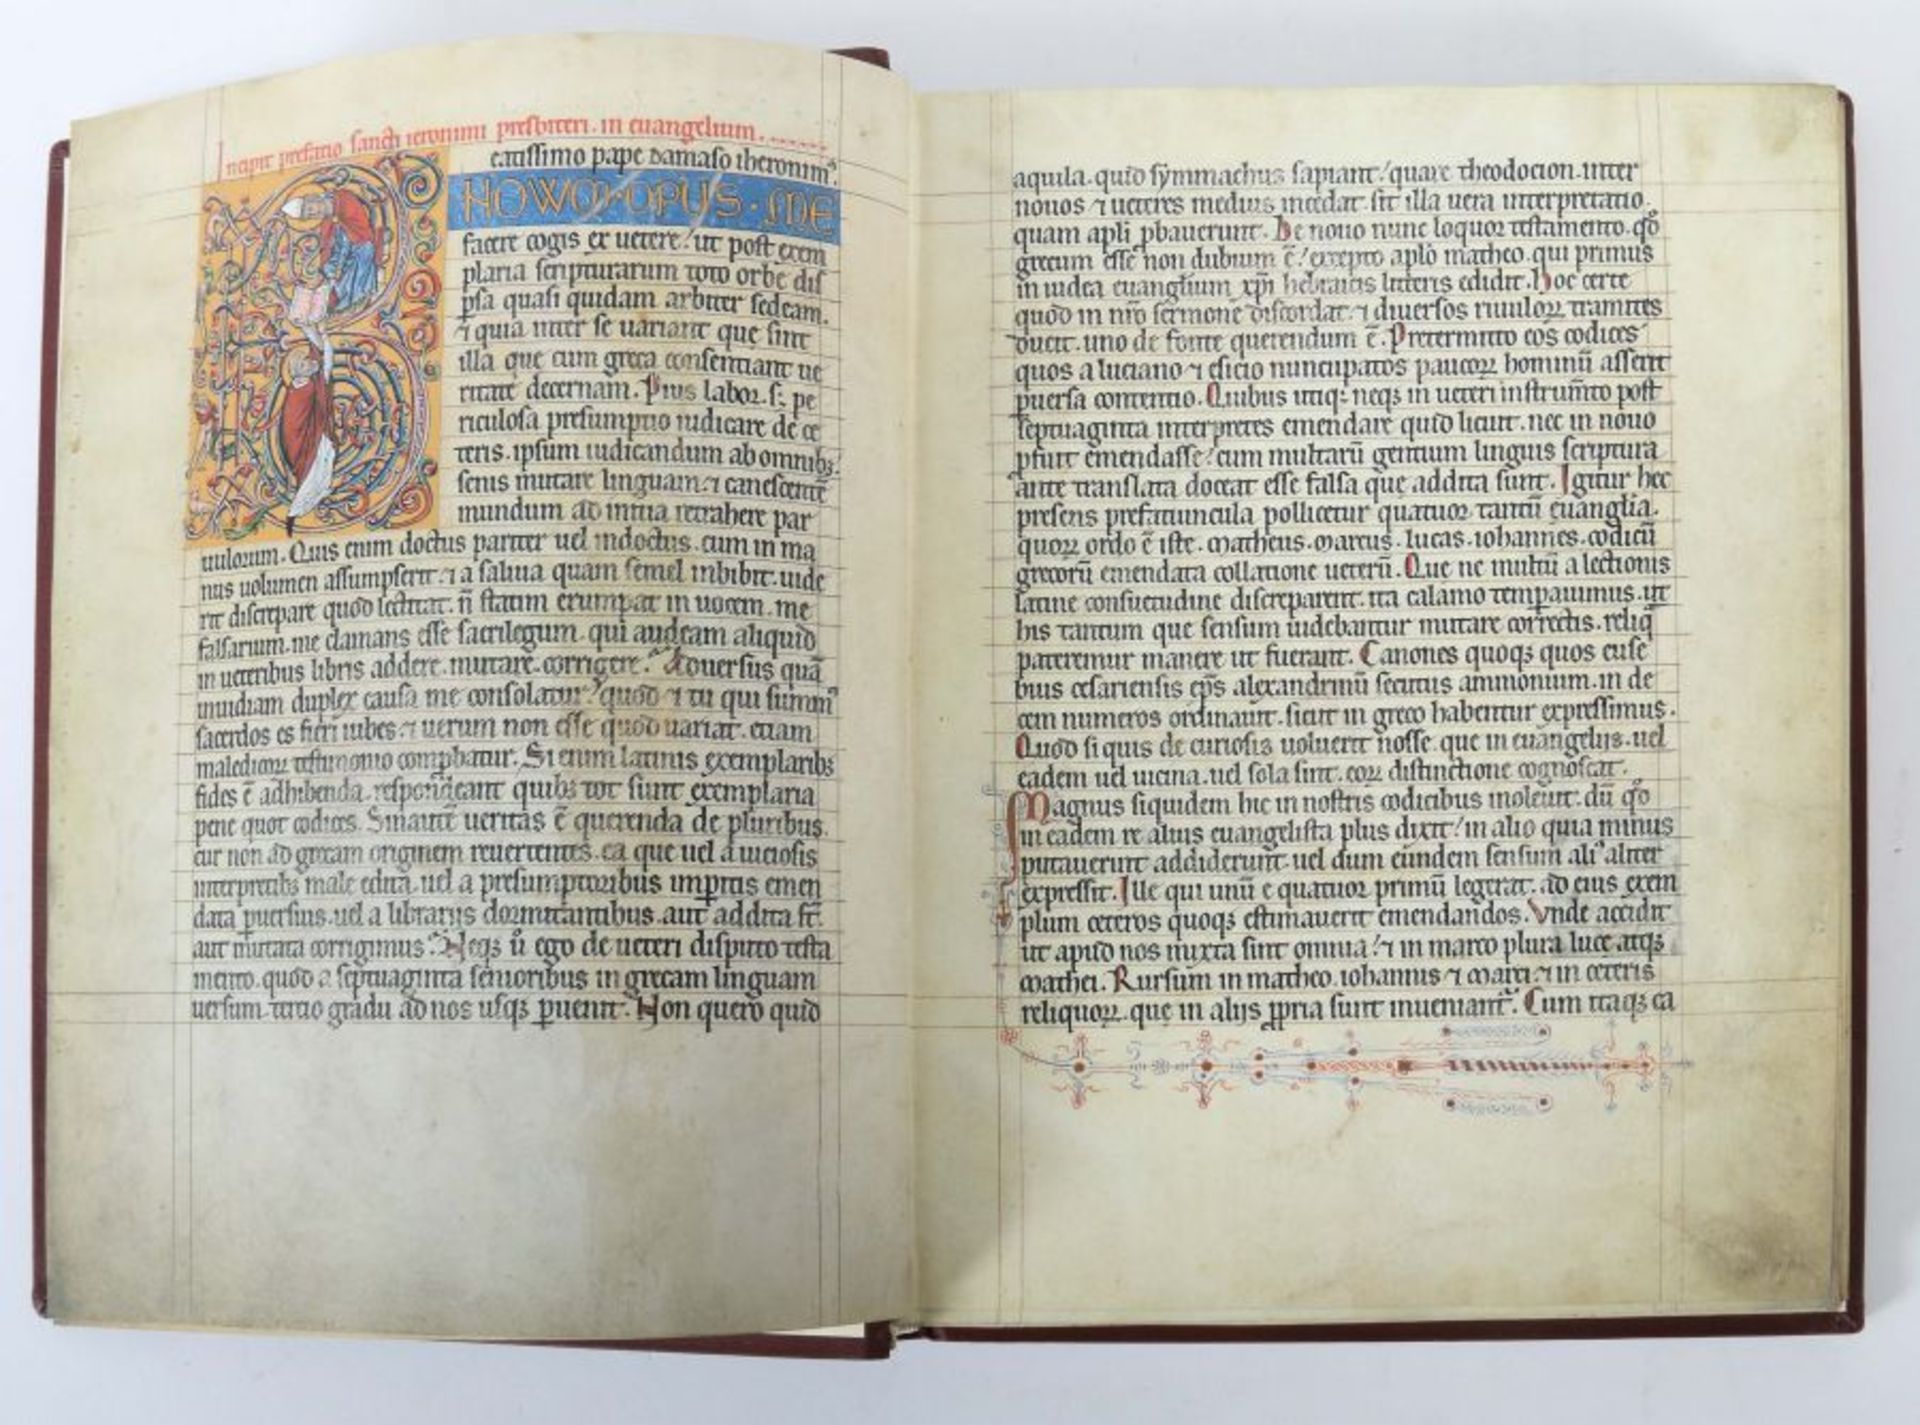 Incipit prefatio sancti ieronimi presbiteri. in euangelium.......
eatissimo pape damaso iheronim᾽.
NOWOM·OPUS·ME
facere cogis ex uetere! ut post exem
plaria scripturarum toto orbe dis
psa quasi quidam arbiter sedeam.
⁊ quia inter se uariant que sint
illa que cum greca consentiant ue
ritate decernam. Pius labor. s; pe
riculosa presumptio iudicare de ce
teris. ipsum iudicandum ab omnib;.
senis mutare linguam. ⁊ canescentē
mundum ad initia retrahere par
uulorum. Quis enim doctus pariter uel indoctus. cum in ma
nus uolumen assumpserit. ⁊ a saliua quam semel inbibit. uide
rit discrepare quod lectitat. n̄ statim erumpat in uocem. me
falsarium. me clamans esse sacrilegum. qui audeam aliquid
in ueteribus libris addere. mutare. corrigere. Aduersus quā
inuidiam duplex causa me consolatur! quod ⁊ tu qui summ᾽
sacerdos es fieri iubes. ⁊ uerum non esse quod uariat. etiam
maledicoꝝ testimonio comphatur. Si enim latinis exemplarib;
fides ē adhibenda. respondeant quib; tot sunt exemplaria
pene quot codices. Sinautē ueritas ē querenda de pluribus.
cur non ad grecam originem reuertentes. ea que uel a uiciosis
interpretib; male edita. uel a presumptoribus imperitis emen
data puersius. uel a librarijs dormitantibus. aut addita st̄.
aut mutata corrigimus. Neq; ū ego de ueteri disputo testa
mento. quod a septuaginta senioribus in grecam linguam
uersum. tertio gradu ad nos usq; puenit. Non quero quid
aquila. quid symmachus sapiant! quare theodocion. inter
nouos ⁊ ueteres medius incedat. sit illa uera interpretatio.
quam apli pbauerunt. De nouo nunc loquor testamento. qd̄
grecum esse non dubium ē! excepto aplō matheo. qui primus
in iudea euanglium xp̄i hebraicis litteris edidit. Hoc certe
quod in nr̄o sermone discordat. ⁊ diuersos riuuloꝝ tramites
ducit. uno de fonte querendum ē. Pretermitto eos codices
quos a luciano ⁊ esicio nuncupatos paucoꝝ hominū asserit
puersa contentio. Quibus utiq; neq; in ueteri instrum̄to post
septuaginta interpretes emendare quid licuit. nec in nouo
pfuit emendasse! cum multarū gentium linguis scriptura
ante translata doceat esse falsa que addita sunt. Igitur hec
presens prefatiuncula pollicetur quatuor tantū euanglia.
quoꝝ ordo ē iste. matheus. marcus. lucas. iohannes. codicū
grecorū emendata collatione ueterū. Que ne multū a lectionis
latine consuetudine discreparent. ita calamo temperauimus. ut
his tantum que sensum uidebantur mutare correctis. reliq̄
pateremur manere ut fuerant. Canones quoq; quos euse
bius cesariensis ep̄s alexandrinū secutus ammonium. in de
cem numeros ordinauit. sicut in greco habentur expressimus.
Quod si quis de curiosis uoluerit nosse. que in euangelijs. uel
eadem uel uicina. uel sola sint. eoꝝ distinctione cognoscat.
Magnus siquidem hic in nostris codicibus inoleuit. dū qd̄
in eadem re alius euangelista plus dixit! in alio quia minus
putauerunt addiderunt. uel dum eundem sensum ali᾽ aliter
expressit. Ille qui unū e quatuor primū legerat. ad eius exem
plum ceteros quoq; estimauerit emendandos. Vnde accidit
ut apud nos mixta sint omnia! ⁊ in marco plura luce atq;
mathei. Rursum in matheo. iohannis ⁊ marci. ⁊ in ceteris
reliquoꝝ. que in alijs ppria sunt inueniant᾽. Cum itaq; ca